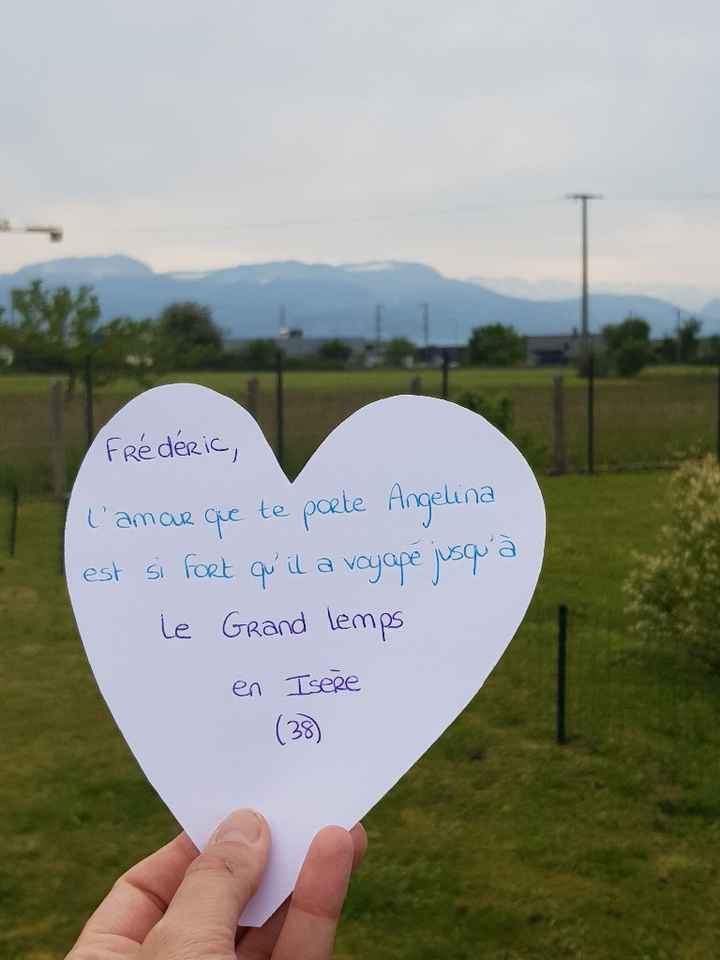 Frédéric,
l'amour que te porte Angelina
est si fort qu'il a voyagé jusqu'à
Le Grand Lemps
en Isère
(38)